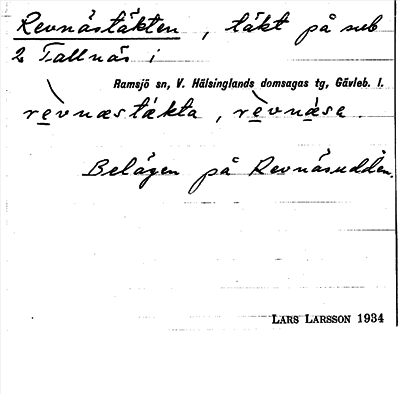 Revnästäkten, täkt på sub
2 Tallnäs i
Ramsjö sn, V. Hälsinglands domsagas tg, Gävleb. l.
rèvnæstäkta, rèvnäsa.
Belägen på Revnäsudden.
LARS LARSSON 1934